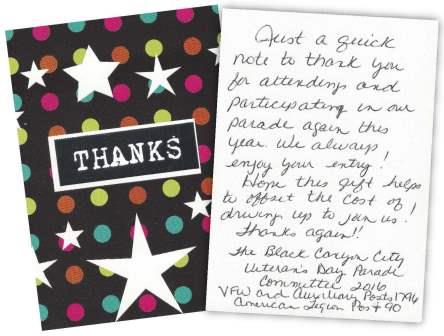 THANKS
Just a quick
note to thank you
for attending and
participating in our
parade again this
year. We always
enjoy your entry!
Hope this gift helps
to offset the cost of
driving up to join us!
Thanks again!!
The Black Canyon City
Veteran's Day Parade
Committee 2016
VFW and Auxiliary Posts 1796
American Legion Post #90